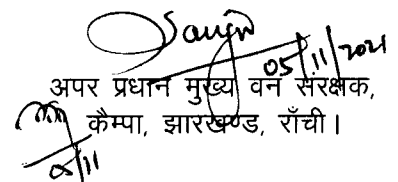 Sanjiv
05/11/2021
अपर प्रधान मुख्य वन संरक्षक,
कैम्पा, झारखण्ड, राँची।